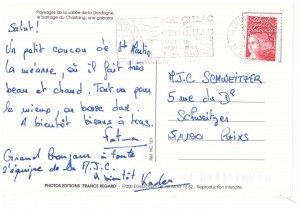 Paysages de la vallée de la Dordogne,
le barrage du Chastang, une gabare.
Salut!
Un petit coucou de St Martin
la méanne, où il fait très
beau et chaud. Tout va pour
le mieux, on bosse dur.
A bientôt bisous à tous.
Fatma
Grand Bonjour à toute
l'équipe de la M.J.C.
à bientôt Kader
M.J.C. SCHWEITZER
5 rue du Dr
Schweitzer
51100 Reims
PHOTOS EDITIONS "FRANCE REGARD" - 19000
Reproduction interdite.